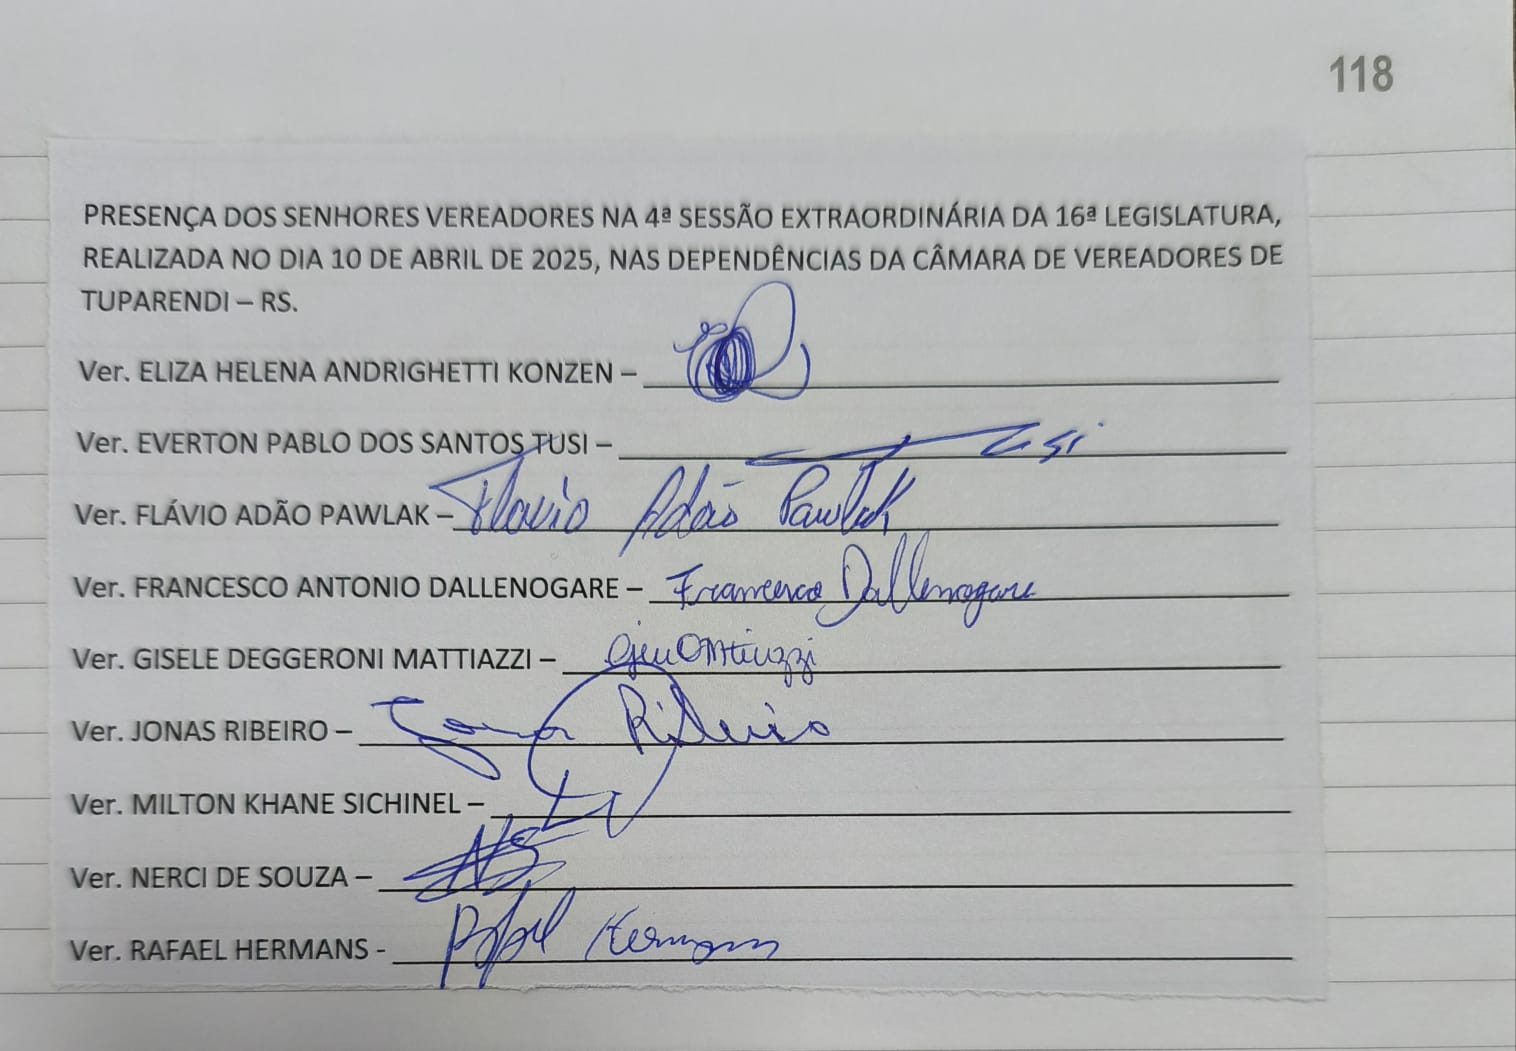 118
PRESENÇA DOS SENHORES VEREADORES NA 4ª SESSÃO EXTRAORDINÁRIA DA 16ª LEGISLATURA,
REALIZADA NO DIA 10 DE ABRIL DE 2025, NAS DEPENDÊNCIAS DA CÂMARA DE VEREADORES DE
TUPARENDI – RS.
Ver. ELIZA HELENA ANDRIGHETTI KONZEN –
Ver. EVERTON PABLO DOS SANTOS TUSI – Tusi
Ver. FLÁVIO ADÃO PAWLAK – Flavio Adão Pawlak
Ver. FRANCESCO ANTONIO DALLENOGARE – Francesco Dallenogare
Ver. GISELE DEGGERONI MATTIAZZI –
Ver. JONAS RIBEIRO – Jonas Ribeiro
Ver. MILTON KHANE SICHINEL –
Ver. NERCI DE SOUZA –
Ver. RAFAEL HERMANS - Rafael Hermans